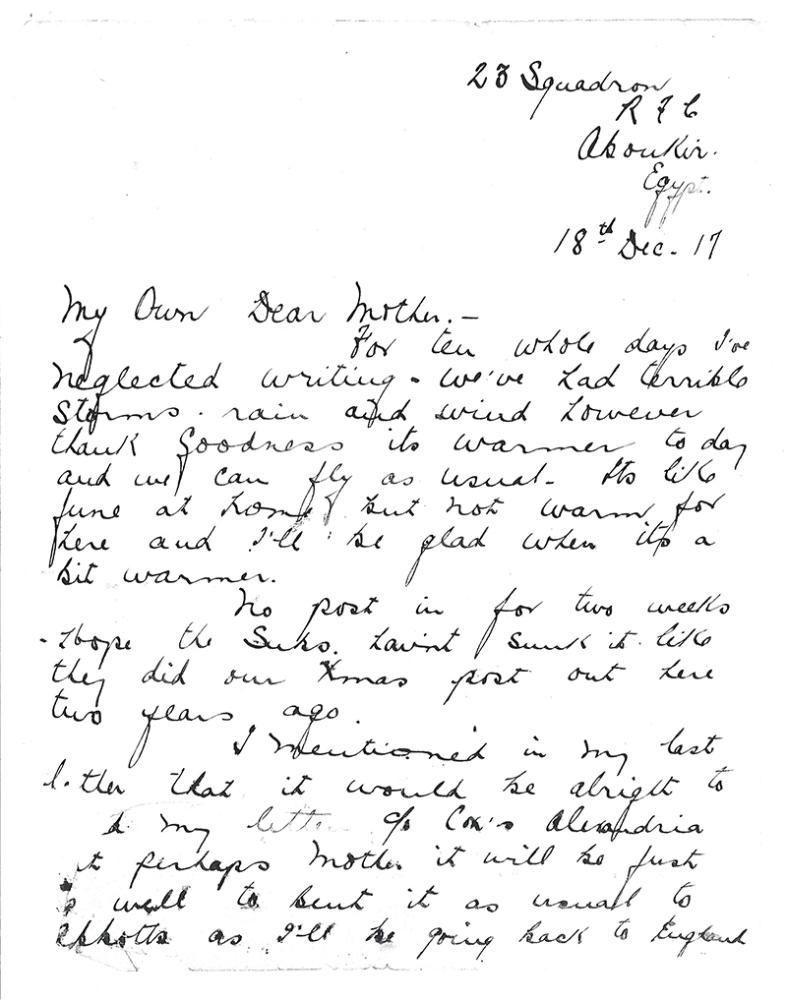 23 Squadron
R F C
Aboukir.
Egypt.
18th Dec. 17
My Own Dear Mother. -
For ten whole days I've
neglected writing - we've had terrible
storms. rain and wind however
thank Goodness its warmer to day
and we can fly as usual - Its like
June at home but not warm for
here and I'll be glad when its a
bit warmer.
No post in for two weeks
- I hope the Subs. havint sunk it like
they did our Xmas post out here
two years ago.
I mentioned in my last
letter that it would be alright to
my letter c/o Cox's Alexandria
perhaps Mother it will be just
well to sent it as usual to
as I'll be going back to England